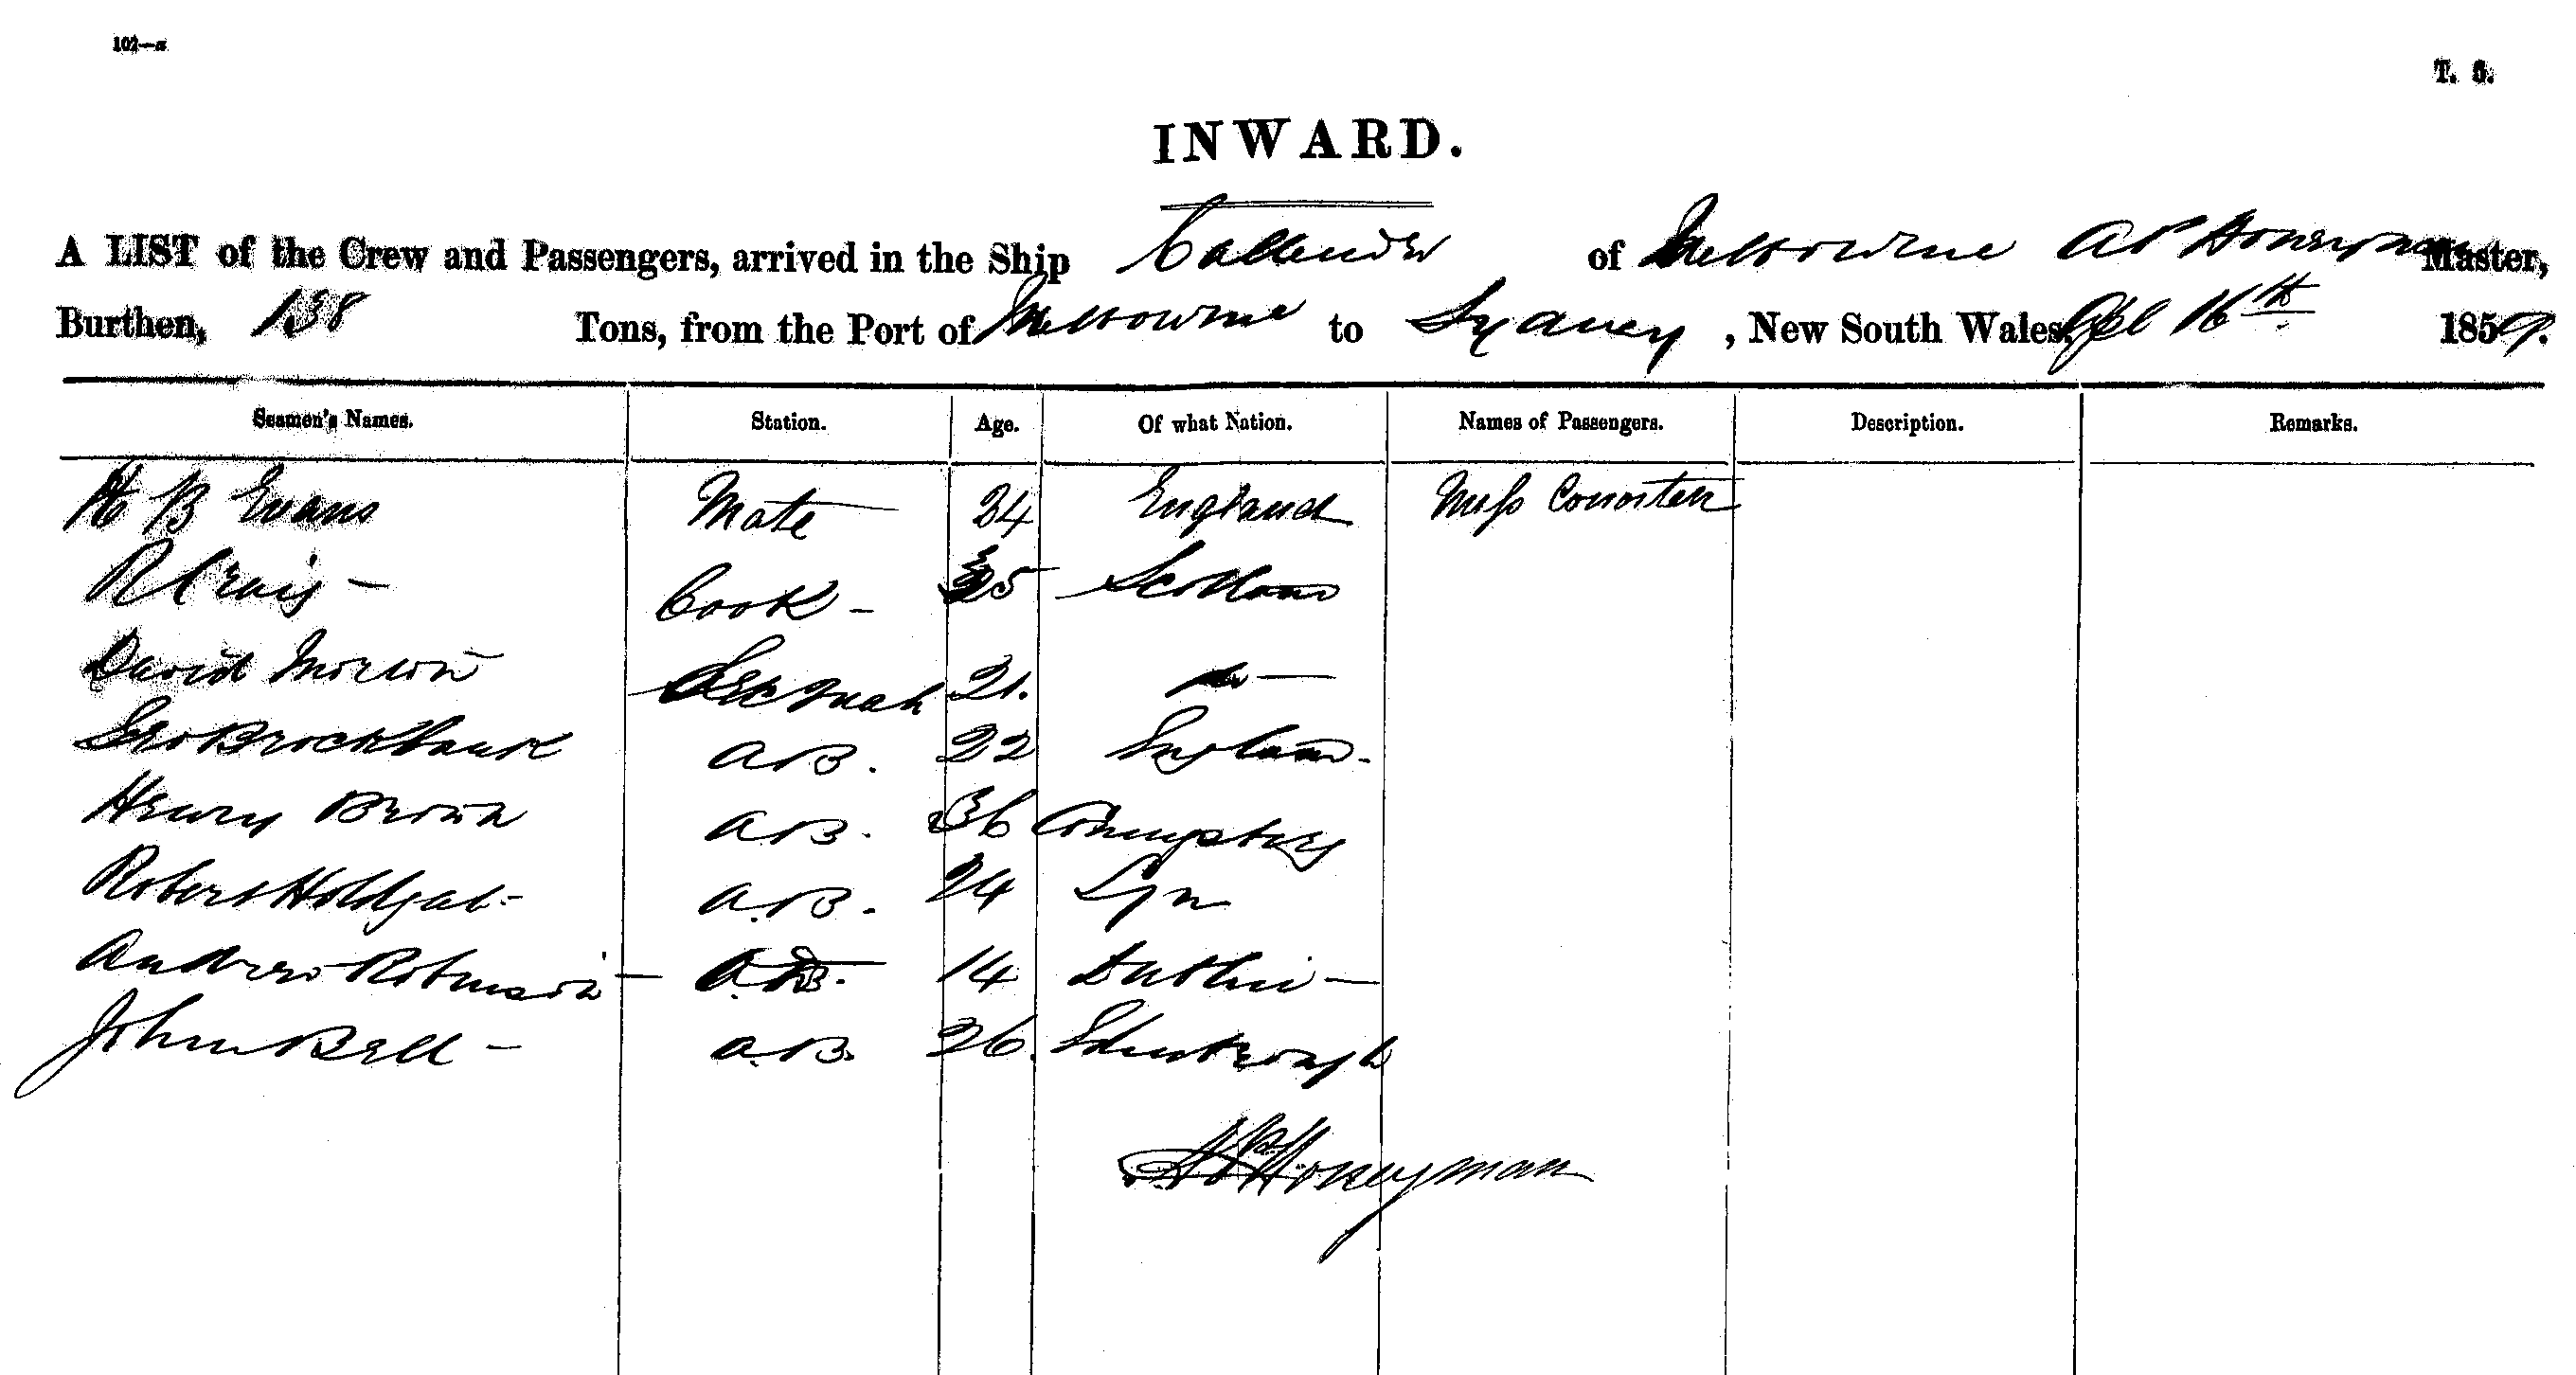 102—a
T. 5.
INWARD.
A LIST of the Crew and Passengers, arrived in the Ship Callender of Melbourne A P Honeyman Master,
Burthen, 138 Tons, from the Port of Melbourne to Sydney, New South Wales, 16th 1859.
Seamen's Names. Station. Age. Of what Nation. Names of Passengers. Description. Remarks.
H B Evans Mate 34 England Miss
R Craig — Cook — 25 Scotland
David 21. Do —
Geo Brockbank A B. 22 England.
Henry Brown A B. 36
Robert Holdgate A.B. 24 Lyn
Andrew Robinson — 14 Dublin —
John Bell — A.B. 26. Edinborough
A P Honeyman